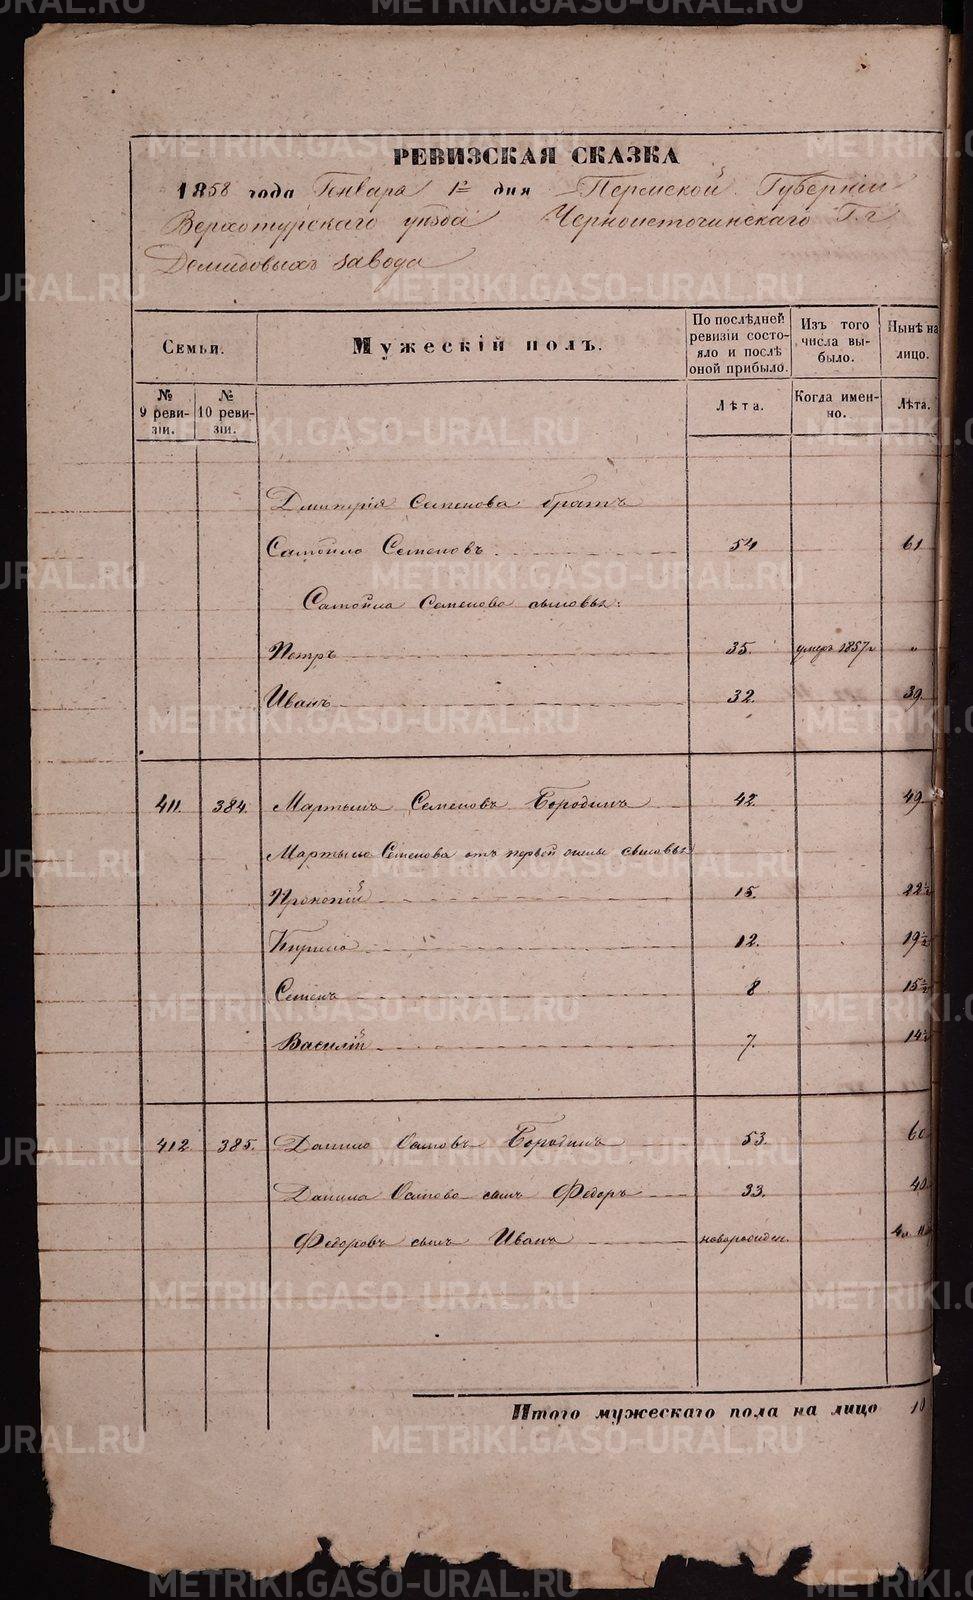 РЕВИЗСКАЯ СКАЗКА
1858 года Генваря 12 дня Пермской Губерніи
Верхотурскаго уѣзда Черноисточинскаго Г.г
Демидовыхъ завода
Семьи.
№ 9 ревизіи.
№ 10 ревизіи.
Мужескій полъ.
По послѣдней ревизіи состояло и послѣ оной прибыло.
Лѣта.
Изъ того числа выбыло.
Когда именно.
Нынѣ на лицо.
Лѣта.
Дмитрія Семенова братъ
Самойло Семеновъ 54 61
Самойла Семенова сыновья:
Петръ 35. умеръ 1857г "
Иванъ 32. 39.
411. 384. Мартынъ Семеновъ Бородинъ 42. 49.
Мартына Семенова отъ первой жены сыновья
Прокопій 15. 22½
Кирило 12. 19½
Семенъ 8 15½
Василій 7. 14½
412 385. Данило Осиповъ Бородинъ 53. 60
Данила Осипова сынъ Федоръ 33. 40
Федоровъ сынъ Иванъ новорожден. 4
Итого мужескаго пола на лицо 10
METRIKI.GASO-URAL.RU